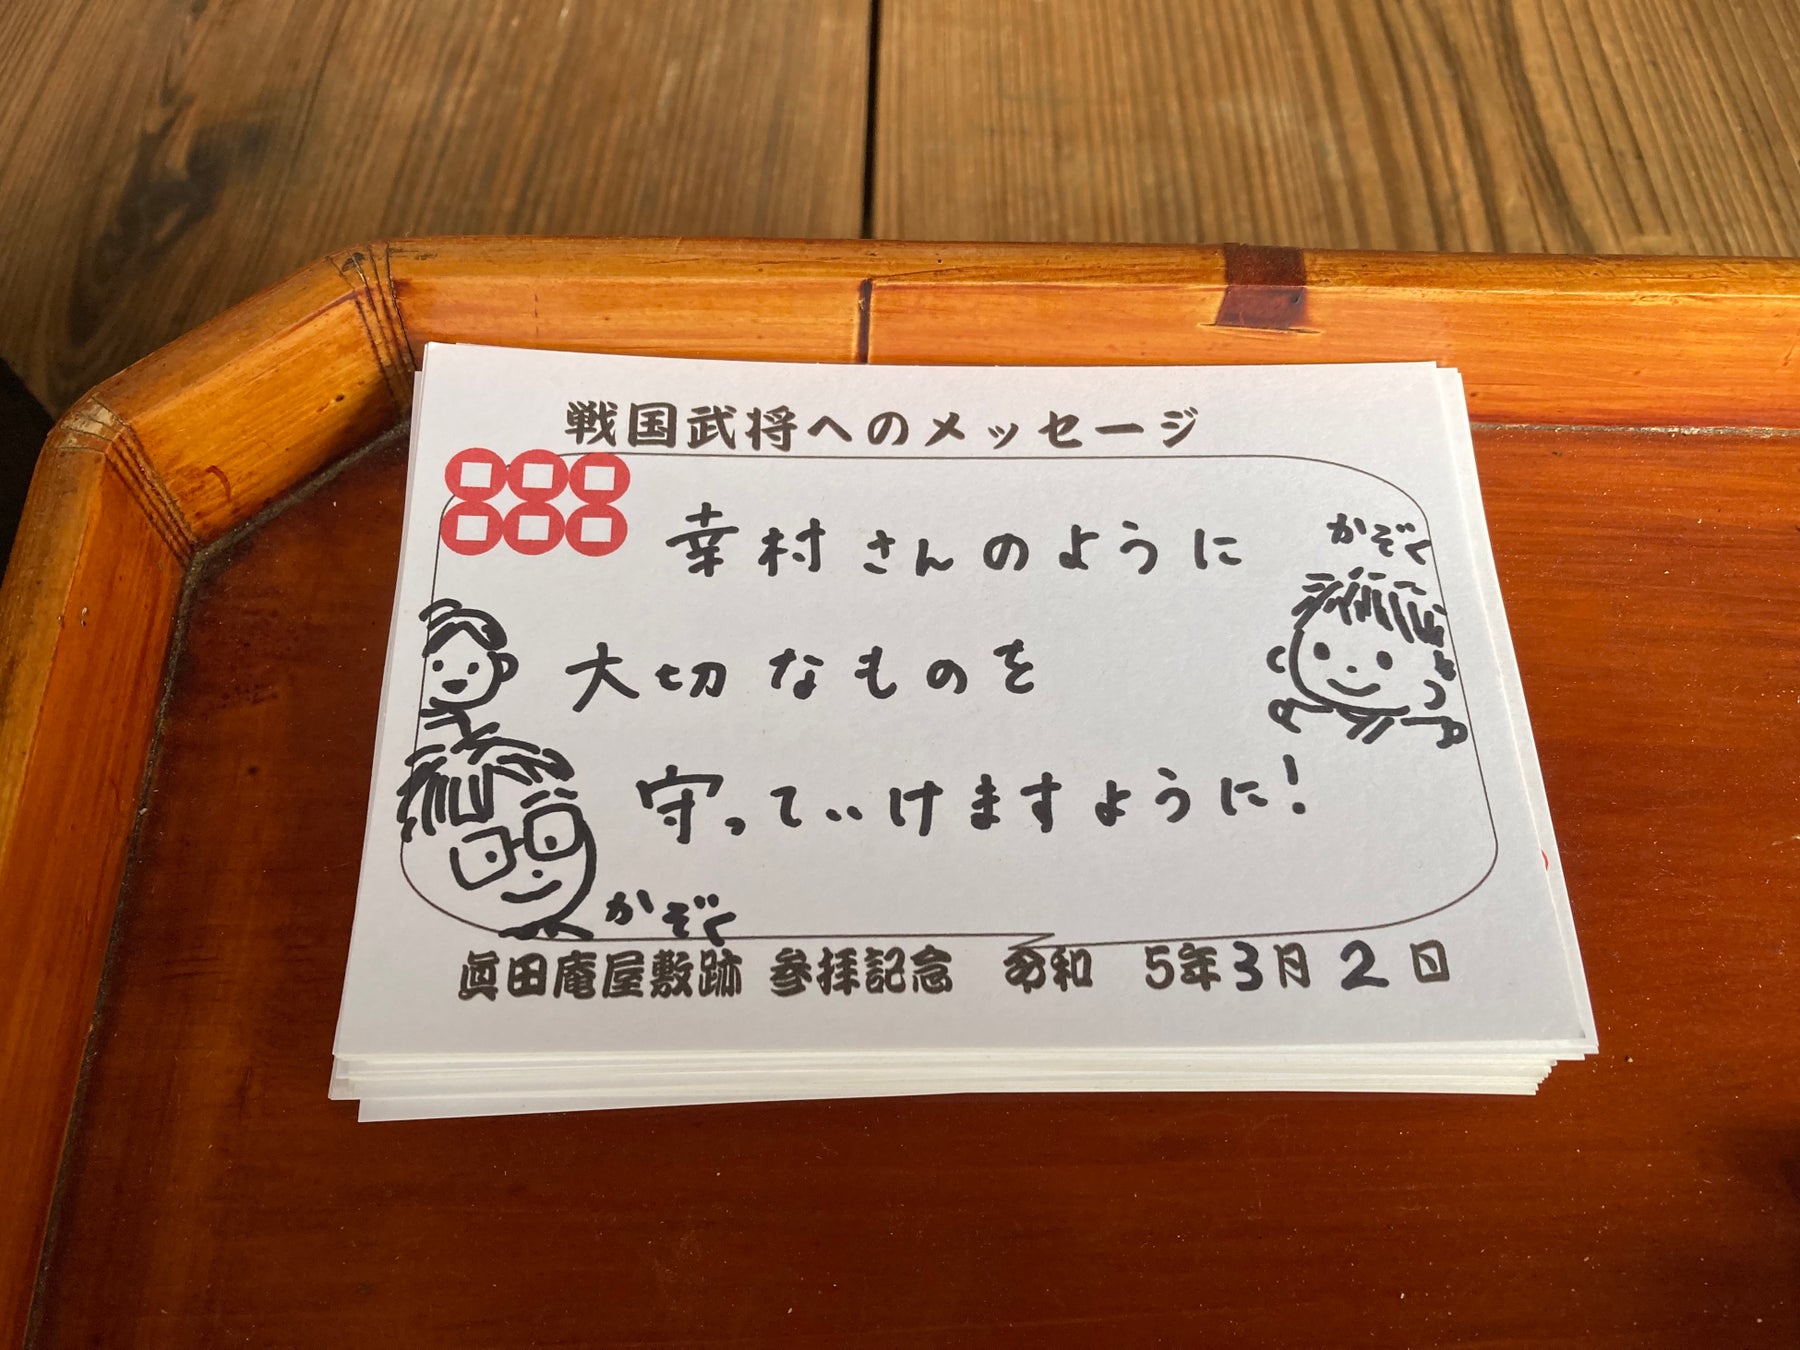 戦国武将へのメッセージ
幸村さんのように
かぞく
大切なものを
守っていけますように!
かぞく
眞田庵屋敷跡 参拝記念 令和 5年3月2日